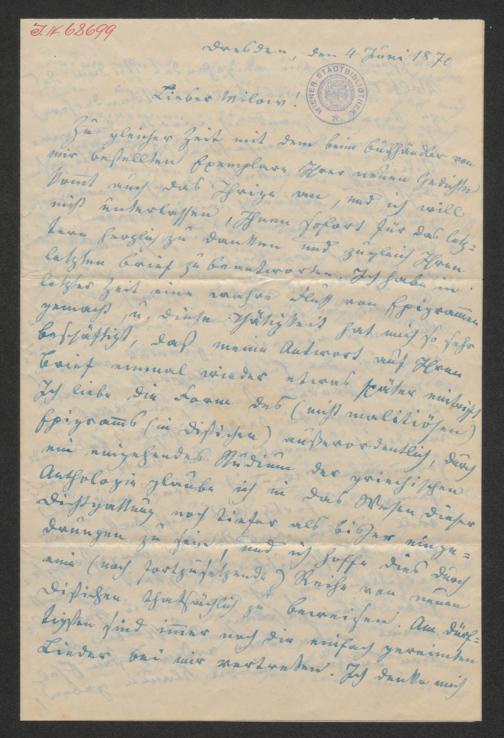 J.N. 68699
Dresden, den 4 Juni 1870
WIENER STADTBIBLIOTHEK
Lieber Milow!
Zu gleicher Zeit mit dem beim Buchhändler von
mir bestellten Exemplare Ihrer neuen Gedichte
kommt auch das Ihrige an, und ich will
nicht unterlassen, Ihnen sofort für das letz=
tere herzlich zu danken und zugleich Ihren
letzten Brief zu beantworten. Ich habe in
letzter Zeit eine wahre Fluth von Epigrammen
gemacht u. diese Thätigkeit hat mich so sehr
beschäftigt, daß meine Antwort auf Ihren
Brief einmal wieder etwas später eintrifft.
Ich liebe die Form des (nicht malitiösen)
Epigramms (in Distichen) außerordentlich, durch
ein eingehendes Studium der griechischen
Anthologie glaube ich in das Wesen dieser
Dichtgattung noch tiefer als bisher einge=
drungen zu sein, und ich hoffe dies durch
eine (noch fortzusetzende) Reihe von neuen
Distichen thatsächlich zu beweisen. Am dürf=
tigsten sind immer noch die einfach gereimten
Lieder bei mir vertreten. Ich denke mich